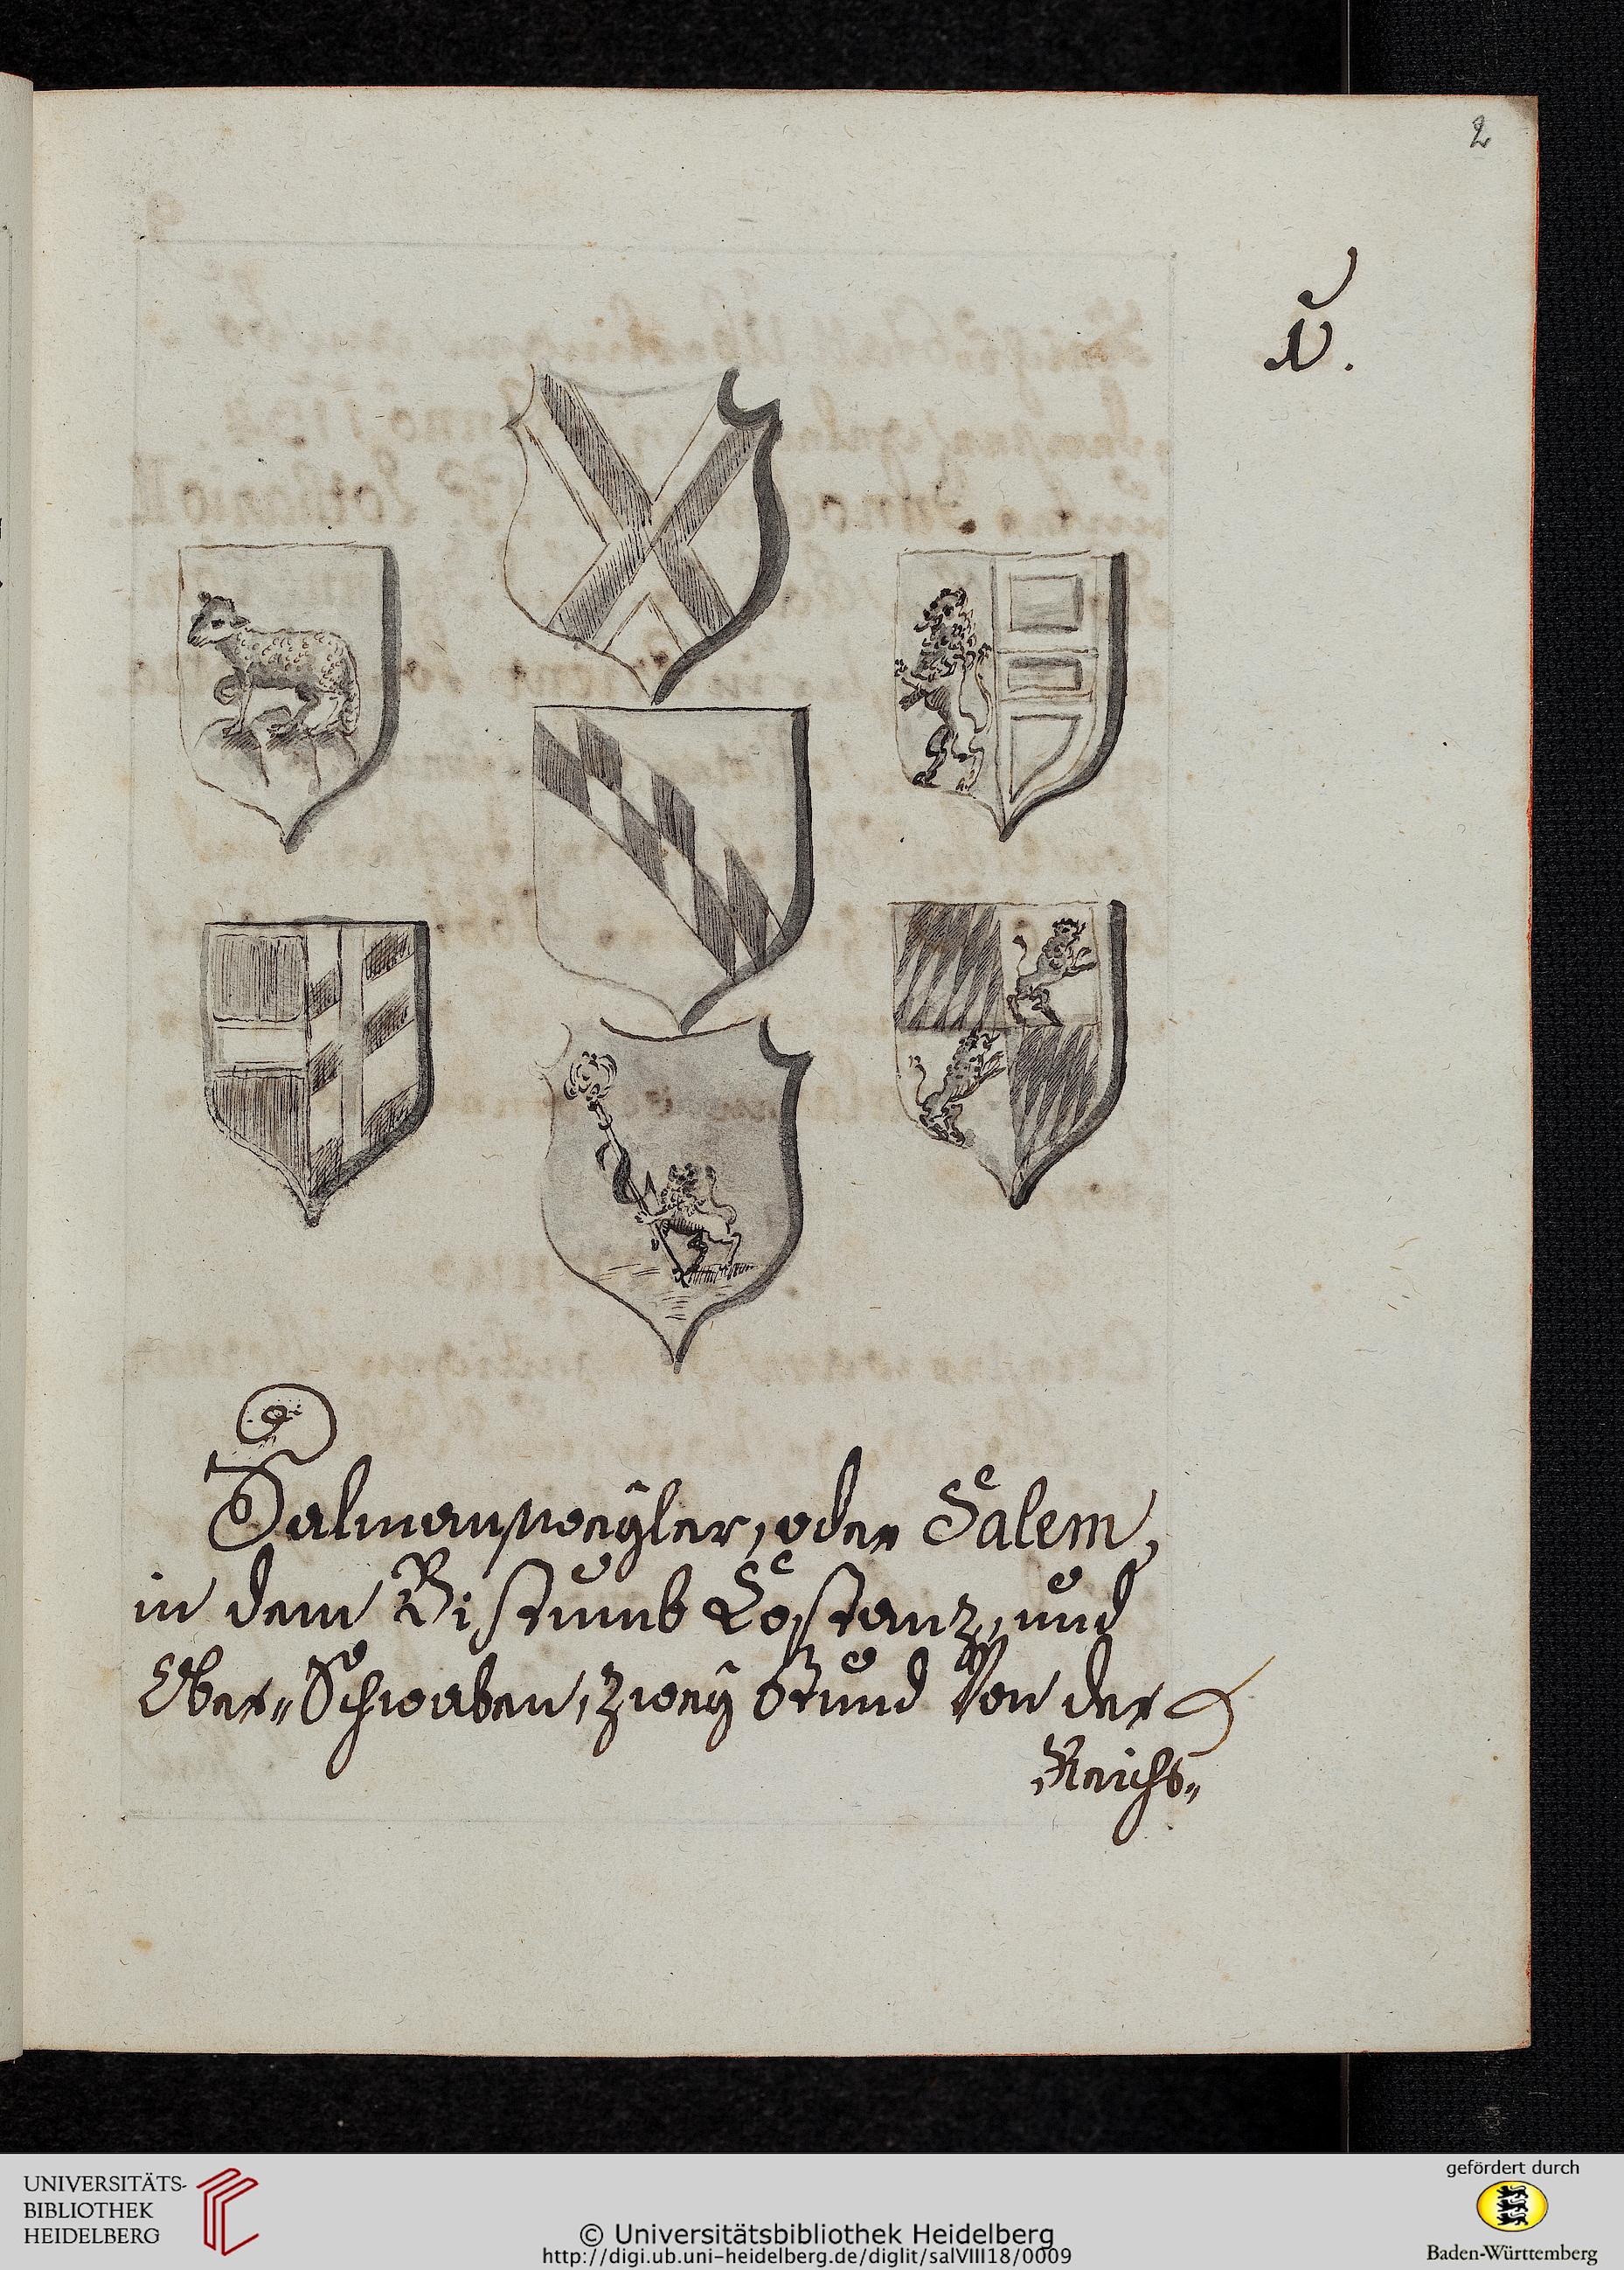 2
Salmansweyler, oder Salem,
in dem Bistumb Costanz, und
Ober-Schwaben, zwey Stund von der
Reichs-
UNIVERSITÄTS-
BIBLIOTHEK
HEIDELBERG
© Universitätsbibliothek Heidelberg
http://digi.ub.uni-heidelberg.de/diglit/salVIII18/0009
gefördert durch
Baden-Württemberg